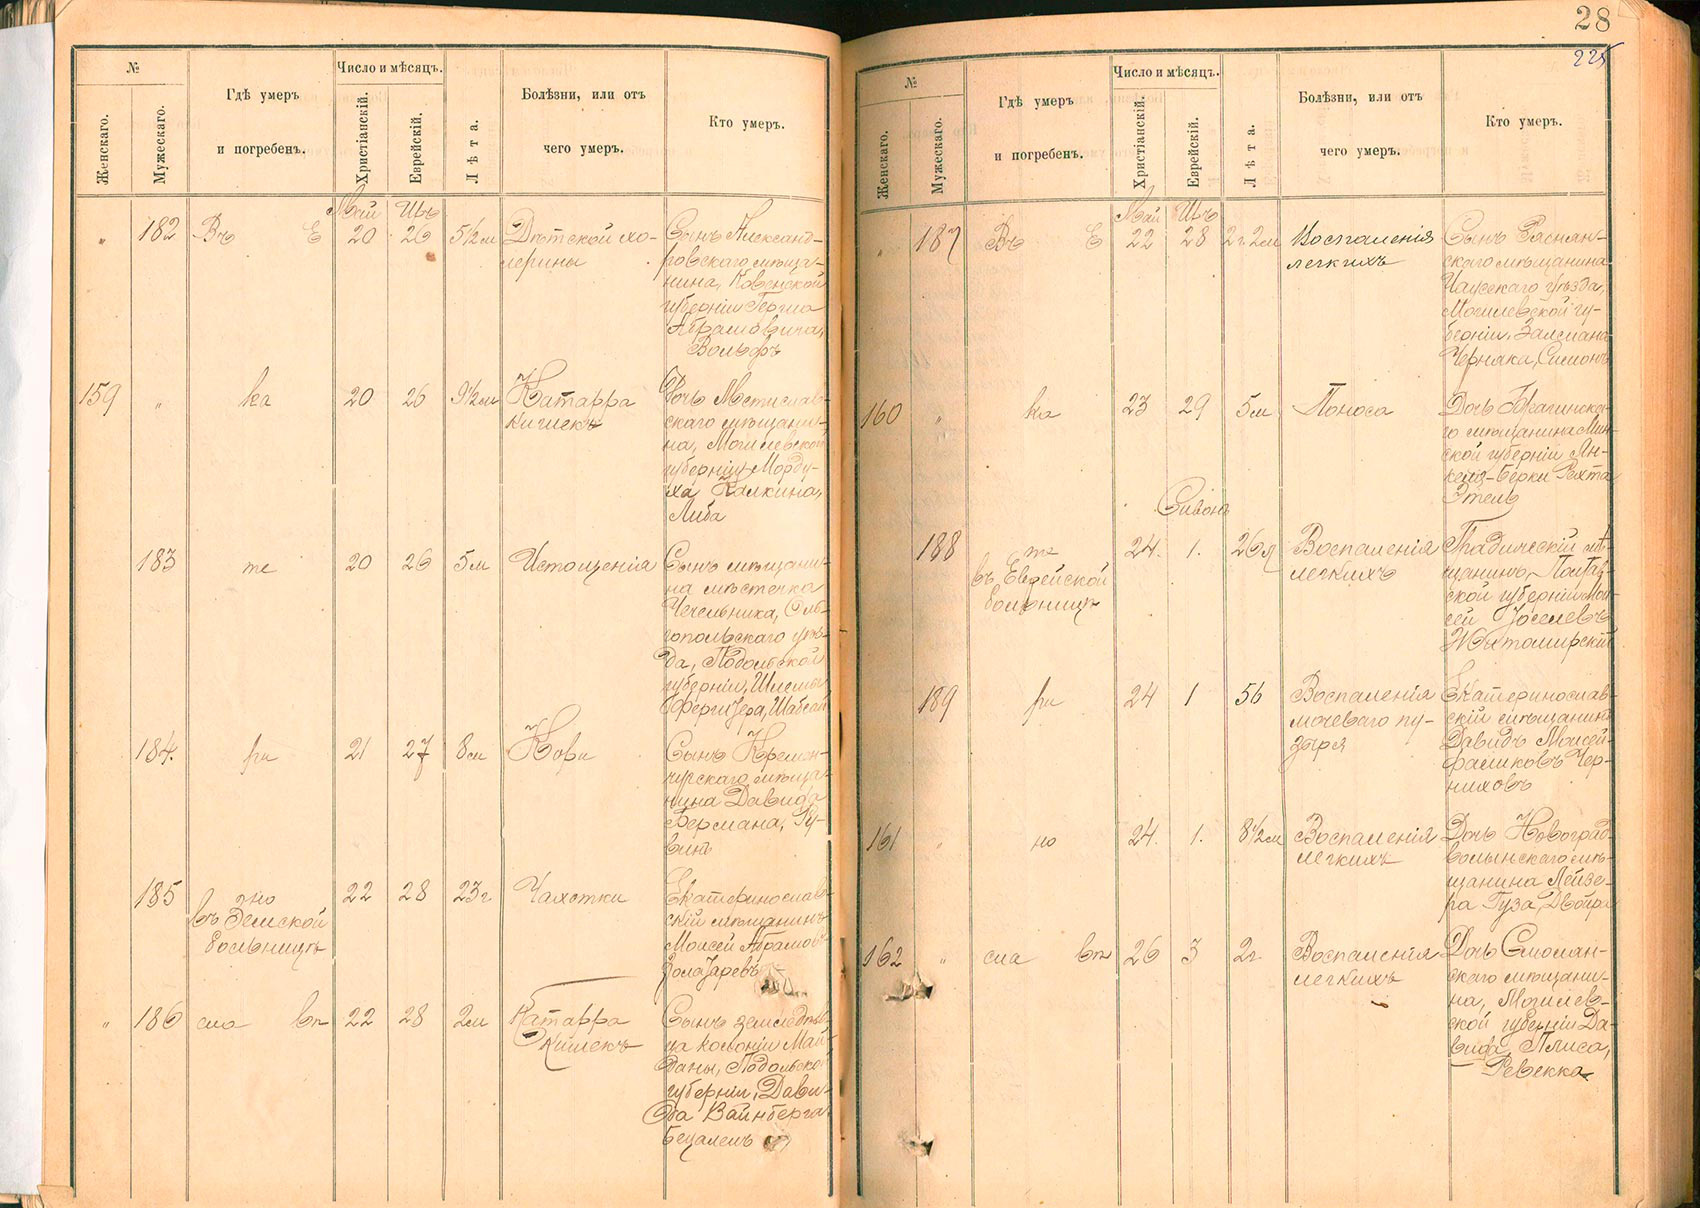 №
Женскаго.
Мужескаго.
Гдѣ умеръ
и погребенъ.
Число и мѣсяцъ.
Христіанскій.
Еврейскій.
Лѣта.
Болѣзни, или отъ
чего умеръ.
Кто умеръ.
Май
"
182
Въ Е
20
26
5 1/2 м
Дѣтской хо-
лерины
Сынъ Александ-
ровскаго мѣща-
нина, Ковенской
губерніи Герша
Абрамовича,
Вольфъ
159
"
ка
20
26
9 1/2 м
Катарра
кишекъ
Дочь Мстислав-
скаго мѣщани-
на, Могилевской
губерніи Морду-
ха Халкина,
Либа
183
те
20
26
5 м
Истощенія
Сынъ мѣщани-
на мѣстечка
Чечельника, Оль-
гопольскаго уѣз-
да, Подольской
губерніи, Шлемы
Шабсай
184.
ри
21
27
8 м
Кори
Сынъ Кремен-
чугскаго мѣща-
нина Давида
Бермана, Ру-
винъ
185
но
въ Земской
больницѣ
22
28
23 г
Чахотки
Екатеринослав-
скій мѣщанинъ
Моисей Абрамовъ
Золазаревъ
"
186
сла вѣ
22
28
2 м
Катарра
кишекъ
Сынъ земледѣль-
ца колоніи Май-
даны, Подольской
губерніи, Дави-
да Вайнберга
Бецалель
28
225
№
Женскаго.
Мужескаго.
Гдѣ умеръ
и погребенъ.
Число и мѣсяцъ.
Христіанскій.
Еврейскій.
Лѣта.
Болѣзни, или отъ
чего умеръ.
Кто умеръ.
Май
"
187
Въ Е
22
28
2 г. 2 м
Воспаленія
легкихъ
Сынъ Расман-
скаго мѣщанина
Чаусскаго уѣзда,
Могилевской гу-
берніи, Залмана
Черняка, Симонъ
160
"
ка
23
29
5 м
Поноса
Дочь Брагинска-
го мѣщанина Мин-
ской губерніи Ян-
келя-Берки Рехта
Этель
Сивонъ
188
те
въ Еврейской
больницѣ
24.
1.
26 л
Воспаленія
легкихъ
Гадическій мѣ-
щанинъ, Полтав-
ской губерніи Мои-
сей Іоселевъ
Житомирскій
189
ри
24
1
56
Воспаленія
мочеваго пу-
зыря
Екатеринослав-
скій мѣщанинъ
Давидъ Моисей-
фаликовъ Чер-
ниховъ
161
"
но
24.
1.
8 1/2 м
Воспаленія
легкихъ
Дочь Новоград-
волынскаго мѣ-
щанина Лейзе-
ра Гуза, Двойра
162
"
сла вѣ
26
3
2 г.
Воспаленія
легкихъ
Дочь Смолян-
скаго мѣщани-
на, Могилев-
ской губерніи Да-
вида Плиса,
Ревекка